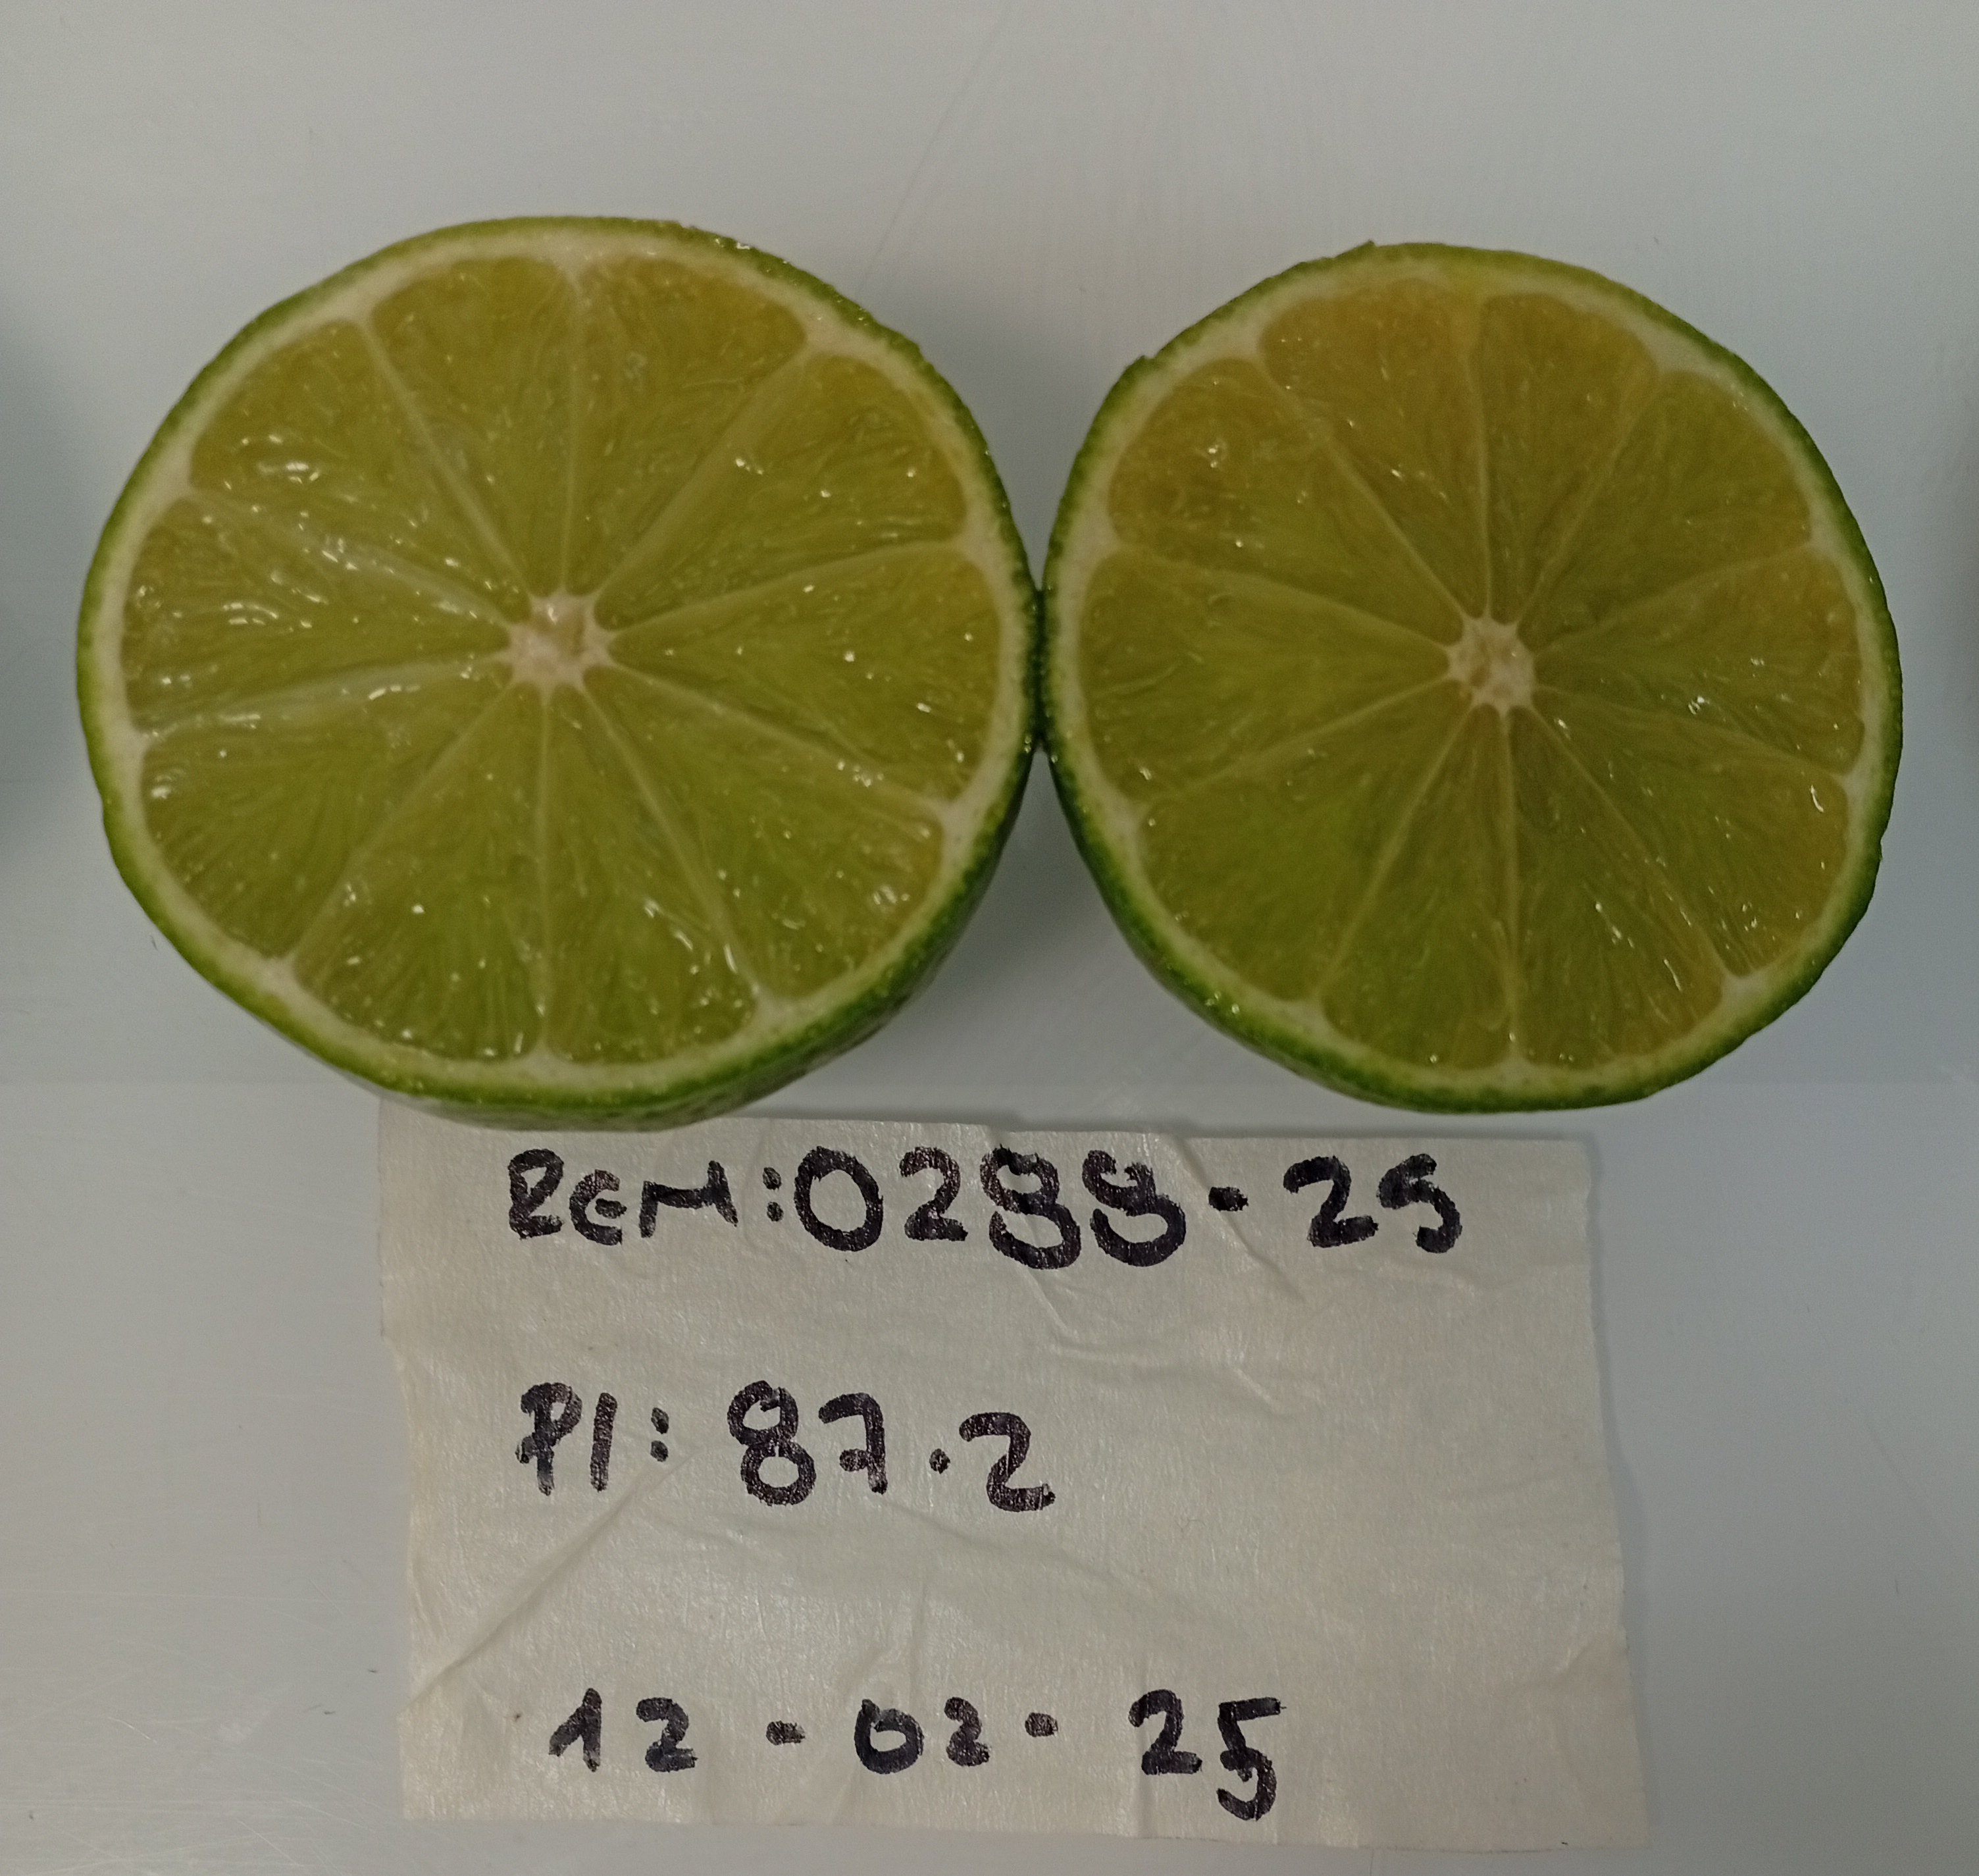 REM:0299-25
PI: 87.2
12-02-25